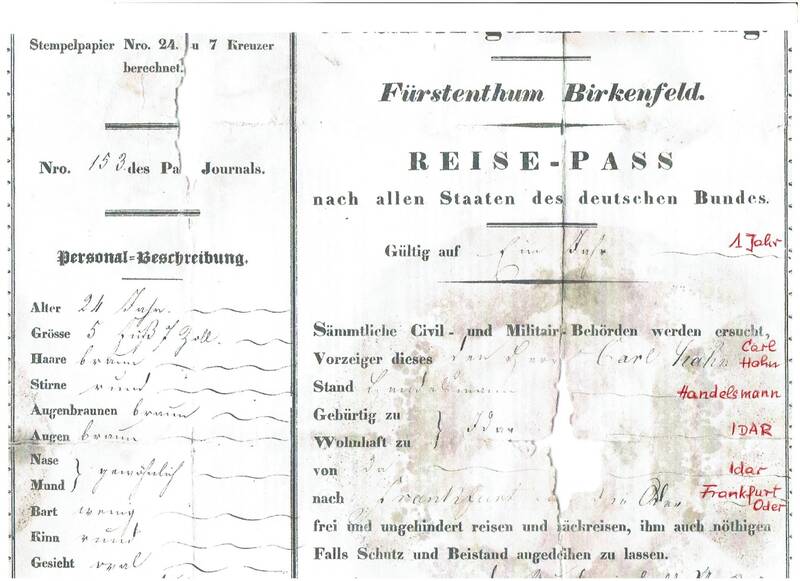 Stempelpapier Nro. 24. u 7 Kreuzer
berechnet.
Nro. 153 des Pa Journals.
Personal=Beschreibung.
Alter 24 Jahr.
Grösse 5 Fuß 7 Zoll.
Haare braun
Stirne rund
Augenbraunen braun
Augen braun
Nase
Mund } gewöhnlich
Bart wenig
Kinn rund
Gesicht oval
Fürstenthum Birkenfeld.
REISE-PASS
nach allen Staaten des deutschen Bundes.
Gültig auf Ein Jahr 1 Jahr
Sämmtliche Civil- und Militair-Behörden werden ersucht,
Vorzeiger dieses den Herrn Carl Hahn Carl Hahn
Stand Handelsmann Handelsmann
Gebürtig zu
Wohnhaft zu } Idar IDAR
von da Idar
nach Frankfurt an der Oder Frankfurt Oder
frei und ungehindert reisen und rückreisen, ihm auch nöthigen
Falls Schutz und Beistand angedeihen zu lassen.